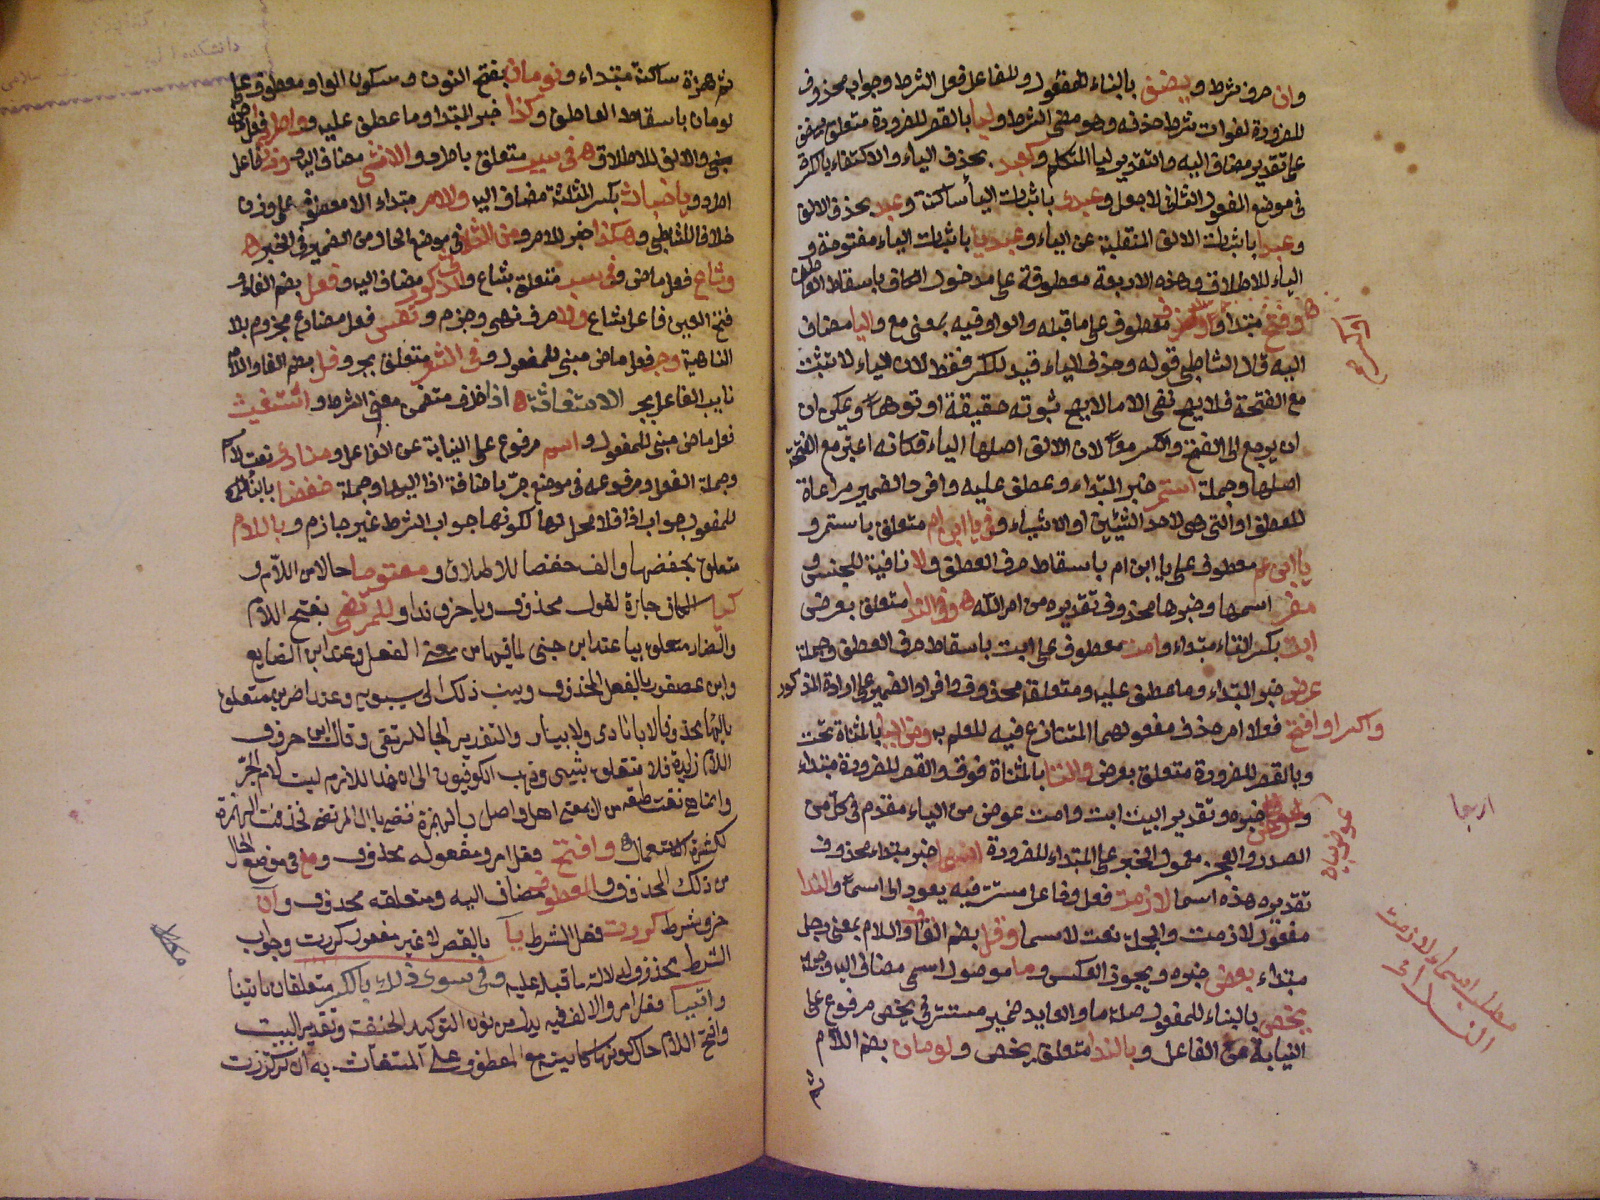 وان حرف شرط و يضف بالبناء للمفعول وللفاعل فعل الشرط وجوابه محذوف
للضرورة لفوات شرط حذفه وهو مضى الشرط وليا بالقصر للضرورة متعلق بيضف
على تقدير مضاف اليه والتقدير ليا المتكلم وكعبد بحذف الياء والاكتفاء بالكسرة
فى موضع المفعول الثانى لاجعل وعبدى باثبات الياء ساكنة وعبد بحذف الالف
وعبدا باثبات الالف المنقلبة عن الياء وعبديا باثبات الياء مفتوحة و
الياء للاطلاق وهذه الاربعة معطوفة على مدخول الكاف باسقاط العاطف
وفتح مبتدأ وكسر معطوف على ما قبله والواو فيه بمعنى مع واليا مضاف
اليه قال الشاطبى قوله وحذف الياء قيد للكسر فقط لان الياء لا تثبت
مع الفتحة فلا يصح نفى الا ما لا يصح ثبوته حقيقة او توهما ويمكن ان
ان يرجع الى الفتح والكسر معا لان الالف اصلها الياء فكانه اعتبر مع الفتحة
اصلها وجملة استمر خبر المبتداء وعطف عليه وافرد الضمير مراعاة
للعطف او التى هى لاحد الشيئين او الاشياء وفى يا ابن ام متعلق باستمر و
يا ابن عم معطوف على يا ابن ام باسقاط حرف العطف ولا نافية للجنس و
مفر اسمها وخبرها محذوف تقديره من امر الله وفى الندا متعلق بعرض
ابت بكسر التاء مبتداء وامت معطوف على ابت باسقاط حرف العطف وجملة
عرض خبر المبتداء وما عطف عليه ومتعلقه محذوف وافراد الضمير على ارادة المذكور
واكسر او افتح فعلا امر حذف مفعولهما المتنازع فيه للعلم به ومن اليا بالمثناة تحت
وبالقصر للضرورة متعلق بعوض والتا بالمثناة فوق والقصر للضرورة مبتداء
وعوض خبره وتقدير البيت ابت وامت عوض من الياء مقدم فى كل من
الصدر والعجز معمول الخبر على المبتداء للضرورة اسما خبر مبتداء محذوف
تقديره هذه اسما لازمت فعل وفاعل مستتر فيه يعود الى اسما والندا
مفعول لازمت والجملة نعت لاسما وفل بضم الفاء واللام بمعنى رجل
مبتداء بعض خبره ويجوز العكس وما موصول اسمى مضاف اليه وجملة
يخص بالبناء للمفعول صلة ما والعايد ضمير مستتر فى يخص مرفوع على
النيابة عن الفاعل وبالندا متعلق بيخص ولومان بضم اللام
مطلب اسماء لازمت
الندائى
ارجا
ثم همزة ساكنة مبتداء ونومان بفتح النون وسكون الواو معطوف على
لومان باسقاط العاطف وكذا خبر المبتدا وما عطف عليه و واطرد فعل ماض
مبنى والالف للاطلاق فى سب متعلق باطرد والانثى مضاف اليه ووزن فاعل
اطرد و يا خباث بكسر المثلثة مضاف اليه والامر مبتداء لا معطوف على وزن
خلافا للشاطبى وهكذا خبر الامر ومن الثلاثى فى موضع الحال من الضمير فى الخبر
وشاع فعل ماض وفى سب متعلق بشاع والذكور مضاف اليه وفعل بضم الفاء و
فتح العين فاعل شاع ولا حرف نهى وجزم و تقس فعل مضارع مجزوم بلا
الناهية وجر فعل ماض مبنى للمفعول وفى الشعر متعلق بجر وفل بضم الفا واللام
نايب الفاعل بجر الاستغاثة اذا ظرف متضمن معنى الشرط و استغيث
فعل ماض مبنى للمفعول و اسم مرفوع على النيابة عن الفاعل و منادى نعت لاسم
وجملة الفعل ومرفوعه فى موضع جر باضافة اذا اليها وجملة خفضا بالبناء
للمفعول جواب اذا فلا محل لها لكونها جواب الشرط غير جازم و باللام
متعلق بخفضها والف خفضا للاطلاق و مفتوحا حال من اللام و
كيا الكاف جارة لقول محذوف ويا حرف ندا و للمرتضى بفتح اللام
والضاد متعلق بيا عند ابن جنى لما فيها من معنى الفعل وعند ابن الضايع
وابن عصفور بالفعل المحذوف وينسب ذلك الى سيبويه وعند اخرين متعلق
بالتها محذوفا لا بانادى ولا بيا والتقدير الجا للمرتضى وقال ابن خروف
اللام زايدة فلا متعلق بشيى وذهب الكوفيون الى ان هذا اللازم ليست لام الجر
وانما هى بقية من ال بمعنى اهل واصل يا لزيد يا ال فحذفت الهمزة
لكثرة الاستعمال وافتح فعل امر ومفعوله محذوف ومع فى موضع الحال
من ذلك المحذوف والمعطوف مضاف اليه ومتعلقه محذوف وان
حرف شرط كررت فعل الشرط يا بالقصر لا غير مفعول كررت وجواب
الشرط محذوف لدلالة ما قبله عليه وفى سوى ذلك بالكسر متعلقان باتينا
واتيا فعل امر والالف فيه بدل من نون التوكيد الخفيفة وتقدير البيت
وافتح اللام حال كونها كاينة مع المعطوف على المستغاث به ان كررت